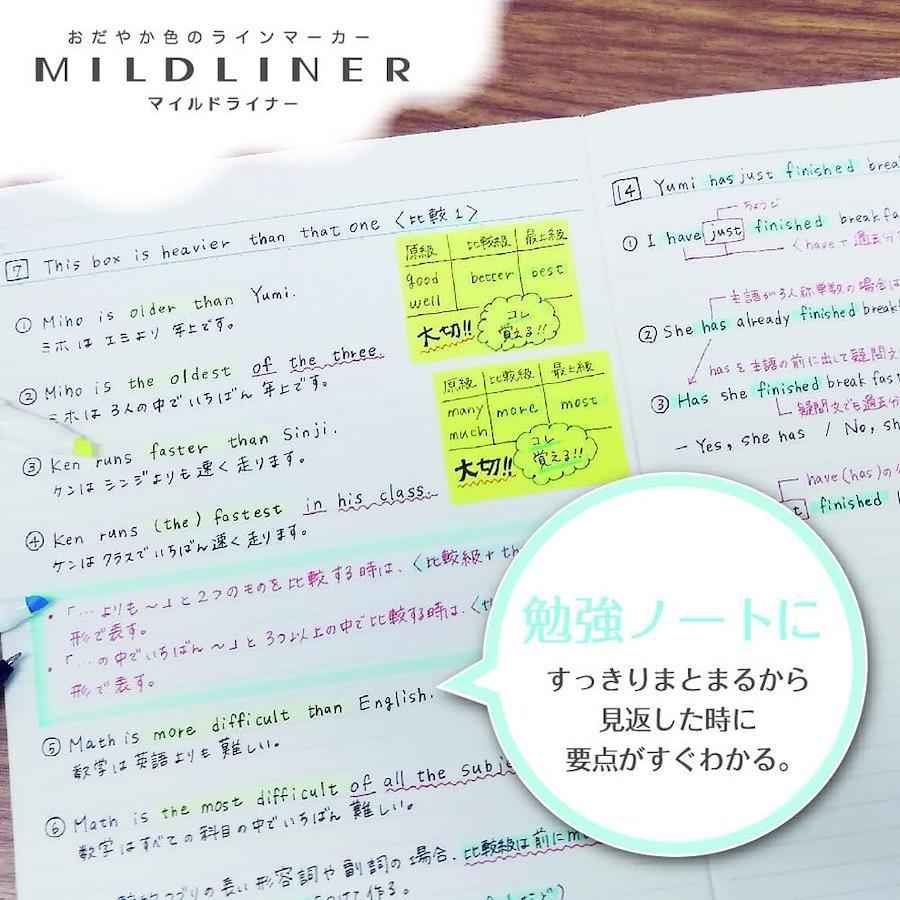 おだやか色のラインマーカー
MILDLINER
マイルドライナー
7 This box is heavier than that one 〈比較1〉
① Miho is older than Yumi.
ミホは エミより 年上です。
② Miho is the oldest of the three.
ミホは 3人の中でいちばん 年上です。
③ Ken runs faster than Sinji.
ケンは シンジよりも 速く 走ります。
④ Ken runs (the) fastest in his class.
ケンは クラスでいちばん 速く 走ります。
・「…よりも〜」と2つのものを比較する時は、〈比較級+th
形で表す。
・「…の中でいちばん〜」と3つ以上の中で比較する時は、〈t
形で表す。
⑤ Math is more difficult than English.
数学は英語よりも 難しい。
⑥ Math is the most difficult of all the subje
数学はすべての科目の中でいちばん 難しい。
の長い形容詞や副詞の場合、比較級は前にm
けて作る。
原級 比較級 最上級
good better best
well
大切!! コレ
覚える!!
原級 比較級 最上級
many more most
much
大切!! コレ
覚える!!
14 Yumi has just finished brea
ちょうど
① I have just finished breakfa
〈have+過去分
主語が3人称単数の場合は
② She has already finished break
hasを主語の前に出して疑問文
③ Has she finished breakfas
疑問文でも過去分
– Yes, she has / No, sh
have(has)の
finished
勉強ノートに
すっきりまとまるから
見返した時に
要点がすぐわかる。